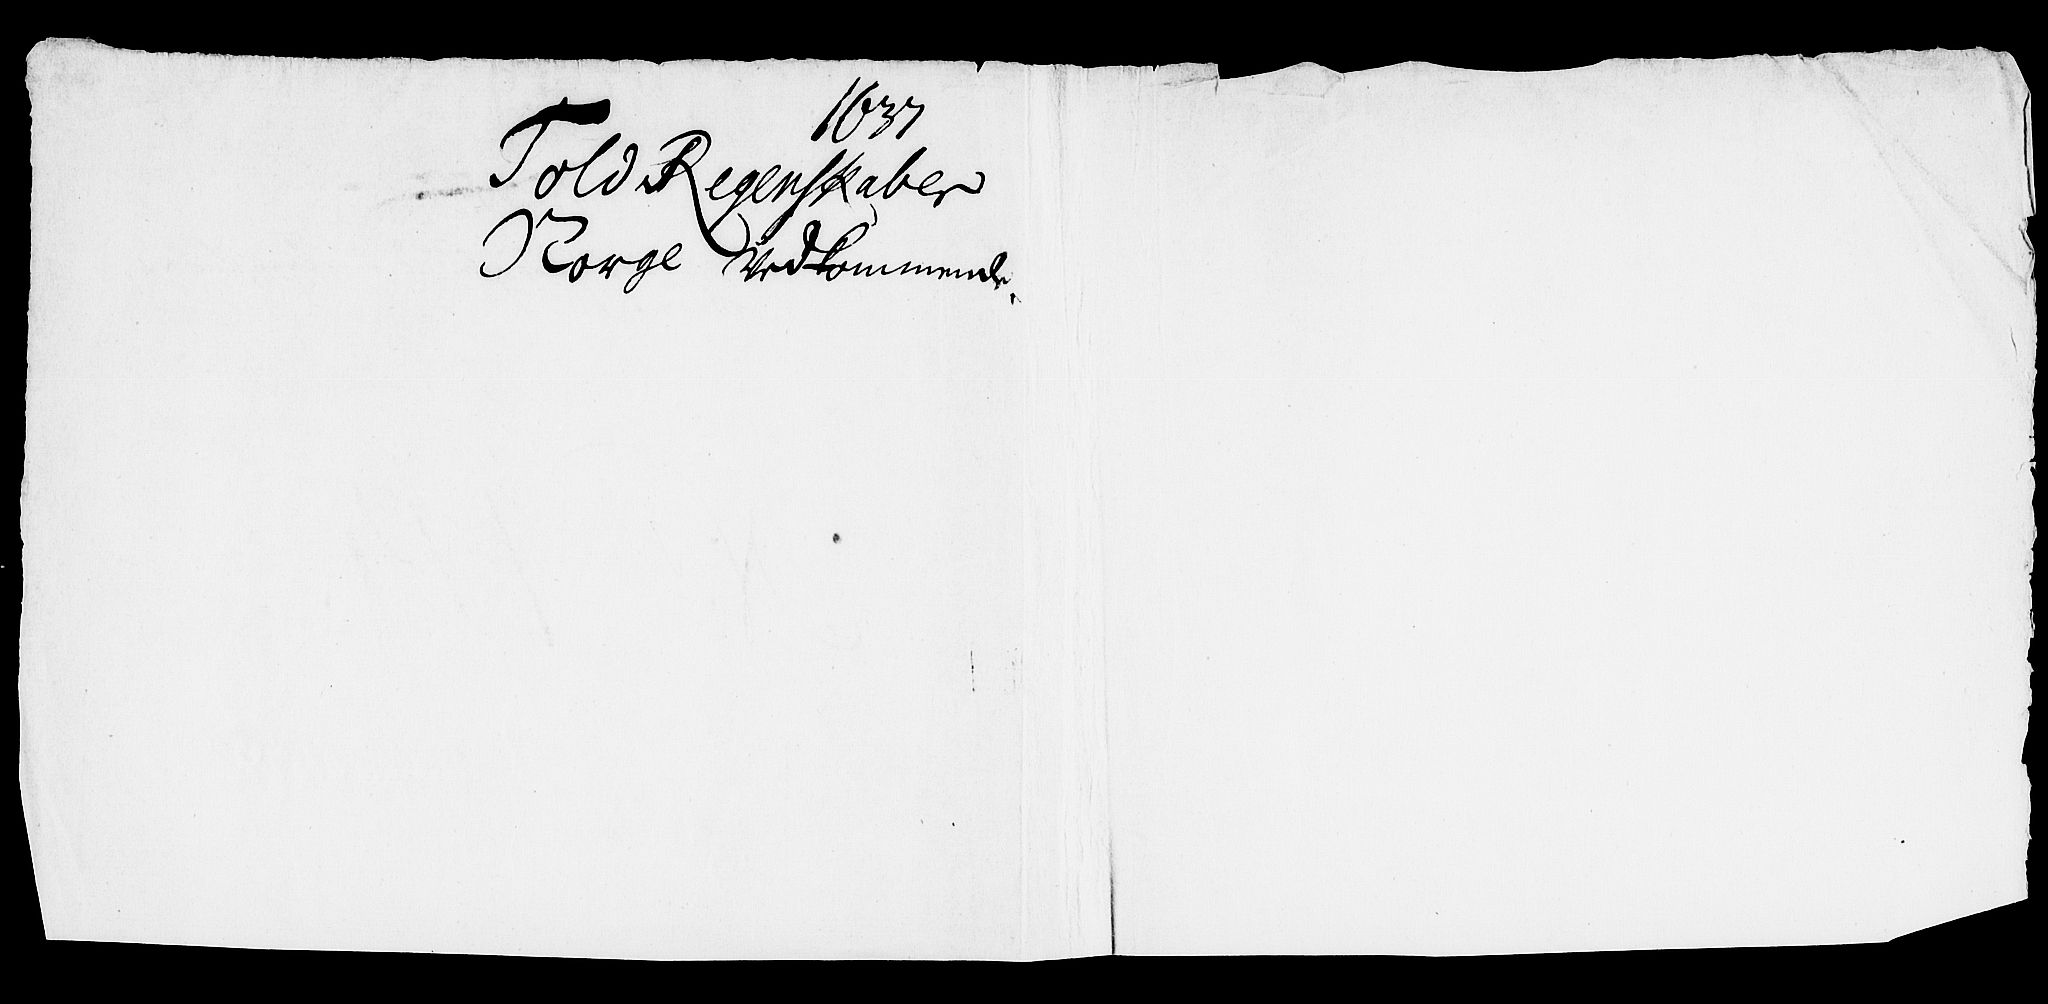 1637
Told Regenskaber
Norge Vedkommende.